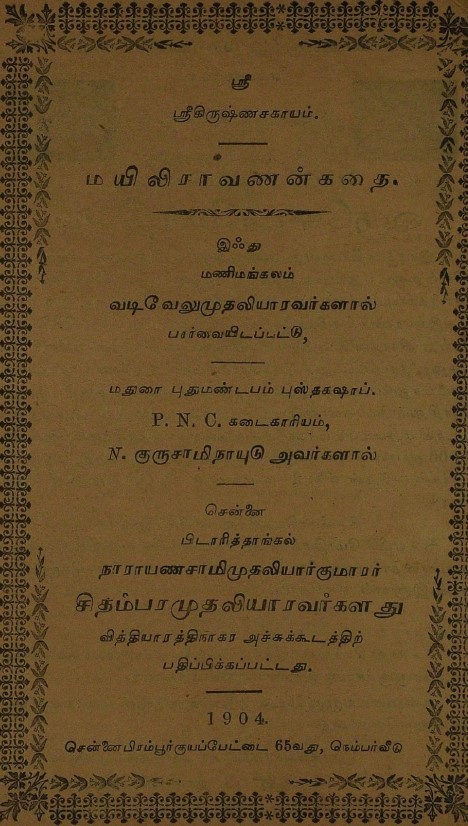 ஸ்ரீ
ஸ்ரீகிருஷ்ணசகாயம்.
மயிலிராவணன்கதை.
இஃது
மணிமங்கலம்
வடிவேலுமுதலியாரவர்களால்
பார்வையிடப்பட்டு,
மதுரை புதுமண்டபம் புஸ்தகஷாப்.
P. N. C. கடைகாரியம்,
N. குருசாமிநாயுடு அவர்களால்
சென்னை
பிடாரித்தாங்கல்
நாராயணசாமிமுதலியார்குமாரர்
சிதம்பரமுதலியாரவர்களது
வித்தியாரத்திநாகர அச்சுக்கூடத்திற்
பதிப்பிக்கப்பட்டது.
1904.
சென்னைபிரம்பூர்குயப்பேட்டை 65வது, நெம்பர்வீடு